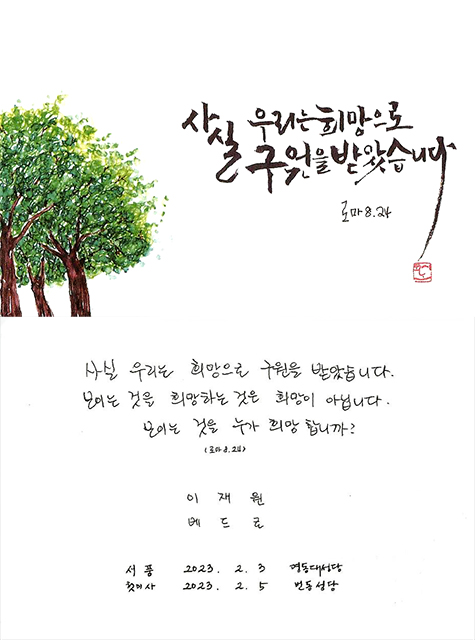 사실 우리는 희망으로
구원을 받았습니다
로마 8.24
사실 우리는 희망으로 구원을 받았습니다.
보이는 것을 희망하는 것은 희망이 아닙니다.
보이는 것을 누가 희망합니까?
(로마 8.24)
이 재 원
베 드 로
서 품 2023. 2. 3 명동대성당
첫미사 2023. 2. 5 번동성당